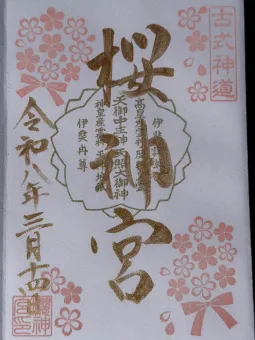 古式神道
桜神宮
天御中主神 天照大御神
高皇産霊神
神皇産霊神
伊弉冉尊
令和八年三月十四日